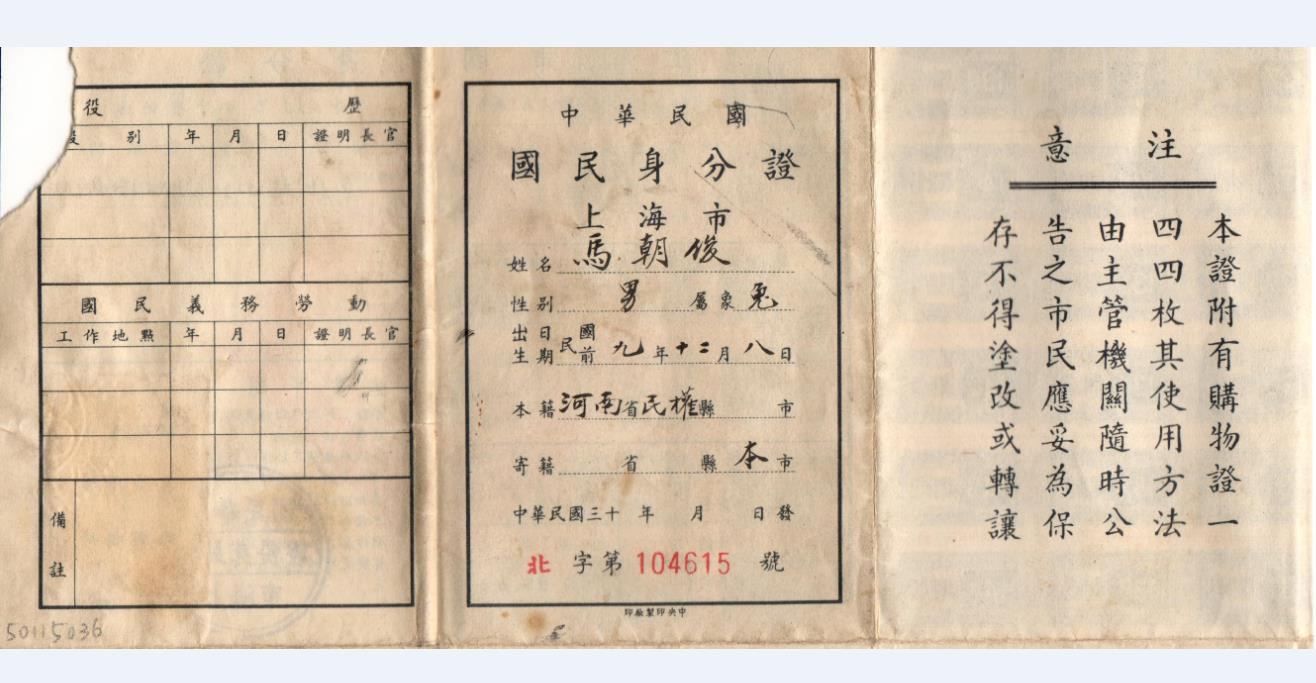 役 歷
別 年 月 日 證明長官
國民義務勞動
工作地點 年 月 日 證明長官
備註
50115036
中華民國
國民身分證
上海市
姓名 馬朝俊
性別 男 屬象 兔
出生日期 民國前九年十二月八日
本籍 河南省民權縣 市
寄籍 省 縣 本市
中華民國三十 年 月 日發
北字第104615號
中央印製廠印
注意
本證附有購物證一
四四枚其使用方法
由主管機關隨時公
告之市民應妥為保
存不得塗改或轉讓